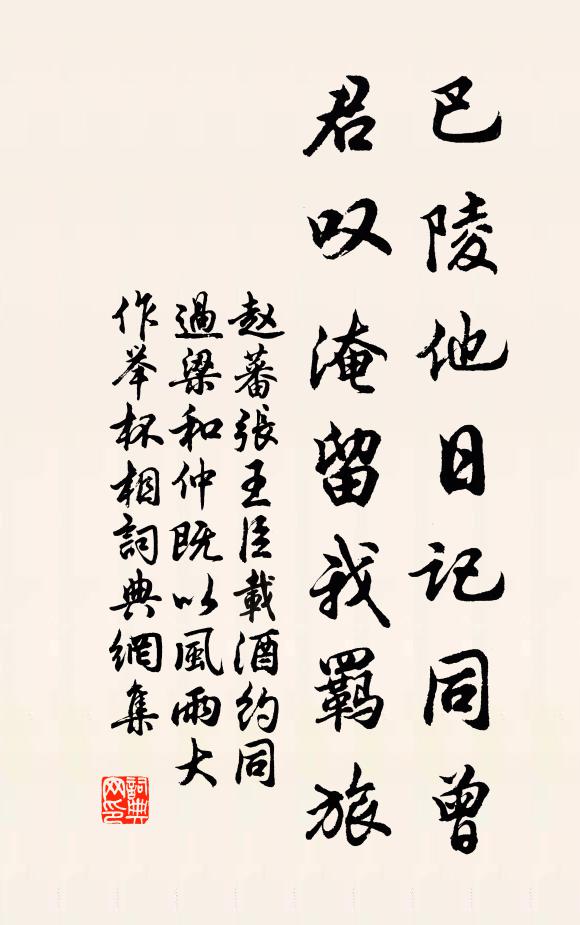 巴陵他日记同曾
君叹淹留我羁旅
赵蕃張王臣載酒約同
過梁和仲既以風雨大
作举杯相詞典網集
詞典
网印